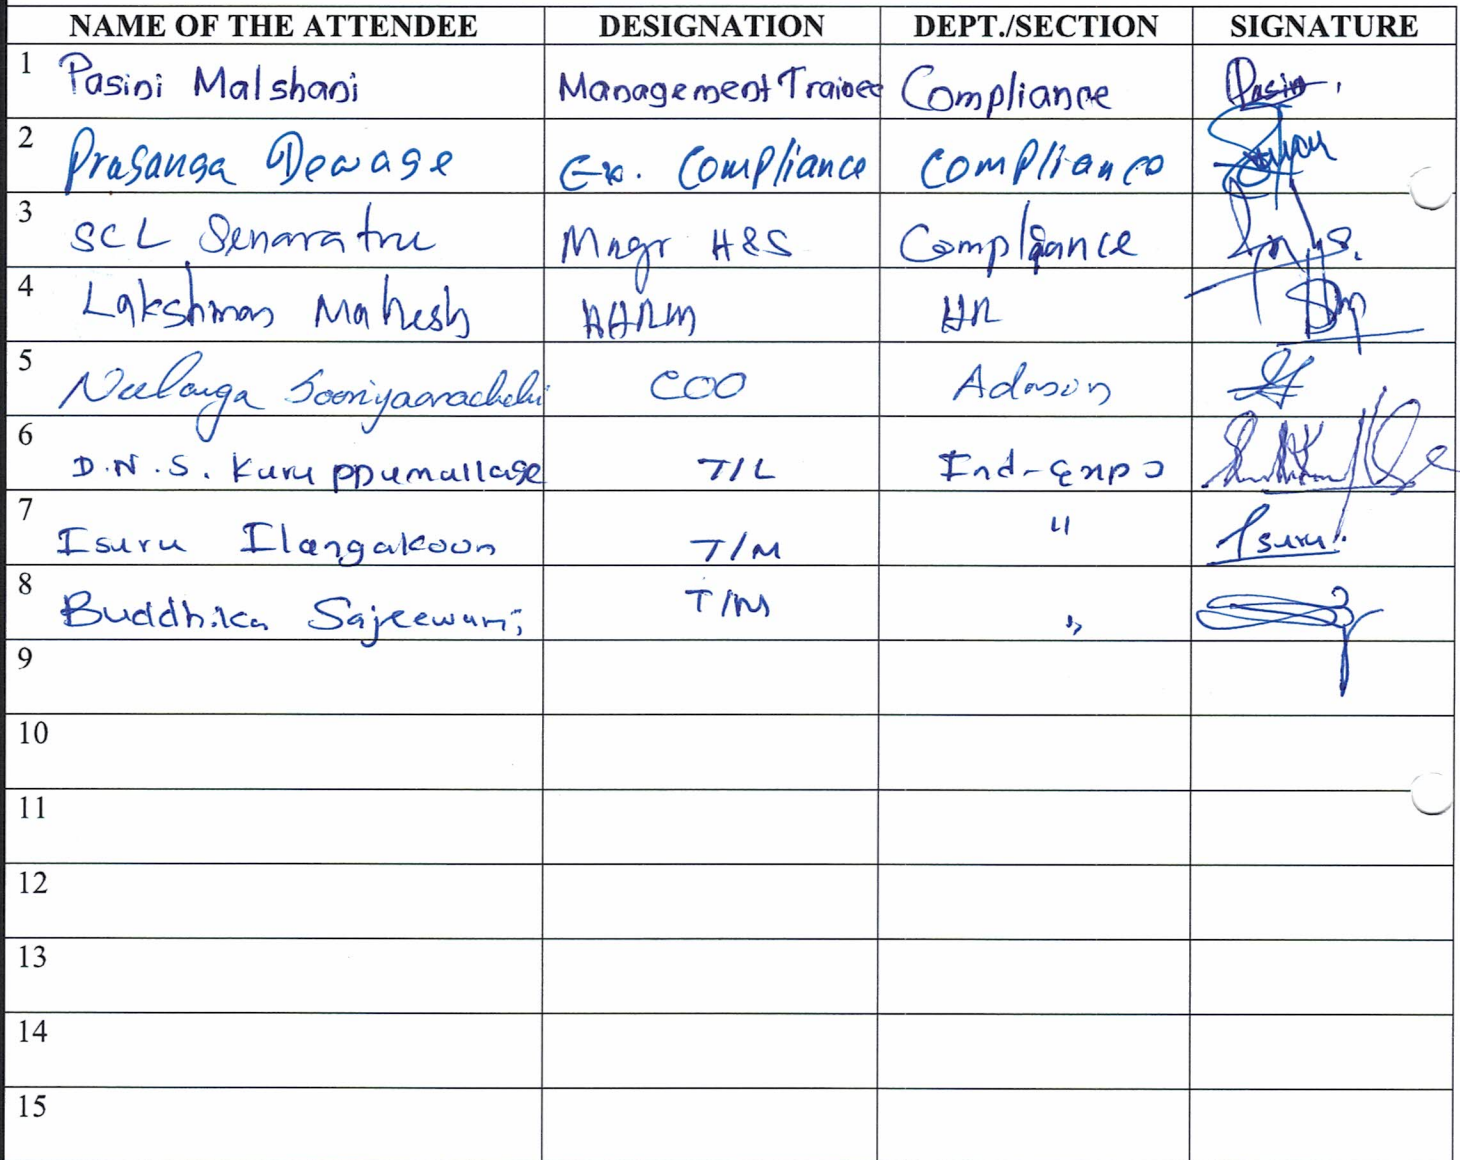 NAME OF THE ATTENDEE DESIGNATION DEPT./SECTION SIGNATURE
1 Pasini Malshani Management Trainee Compliance Pasin
2 Prasanga Dewage Ex. Compliance Compliance
3 SCL Senaratne Mngr H&S Compliance
4 Lakshman Mahesh AHRM HR
5 Neelanga Sooriyaarachchi COO Admin
6 D.N.S. Kuruppumullage T/L End-Expo
7 Isuru Ilangakoon T/M " Isuru
8 Buddhika Sajeewani T/M "
9
10
11
12
13
14
15